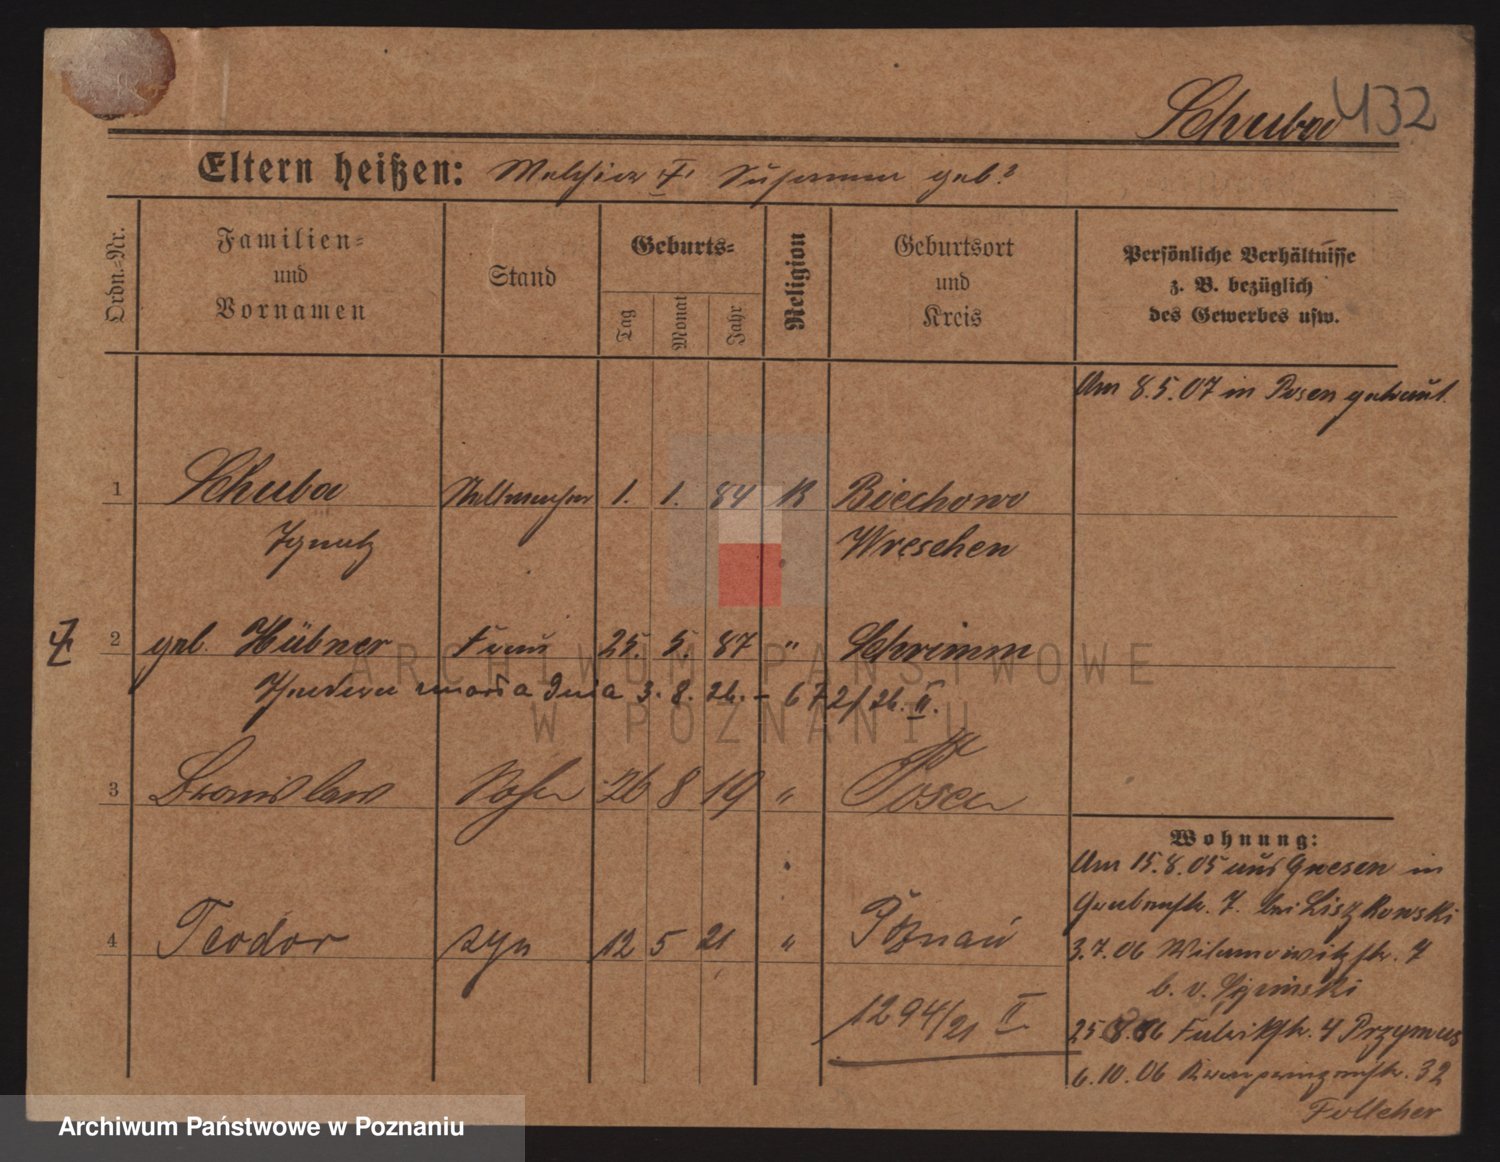 Schuba 432
Eltern heißen: Melchior Susanna geb.?
Ordn.-Nr.
Familien-
und
Vornamen
Stand
Geburts-
Tag
Monat
Jahr
Religion
Geburtsort
und
Kreis
Persönliche Verhältnisse
z. B. bezüglich
des Gewerbes usw.
Am 8.5.07 in Posen getraut.
1 Schuba Stellmacher 1. 1. 84 K Biechowo
Ignatz Wreschen
2 geb. Hübner Frau 25. 5. 87 " Schrimm
zmarła dnia 3. 8. 26. - 6721/26. II.
3 Bronislaw Sohn 26 8 19 " Posen
4 Teodor syn 12 5 21 " Poznań
1294/21 II
Wohnung:
Am 15.8.05 aus Gnesen in
Grabenstr. 7. bei Liszkowski
3.7.06 Wilamowitzstr. 7
b. v.
25 8.06 Fabrikstr. 4 Przymus
6.10.06 Kronprinzenstr. 32
ARCHIWUM PAŃSTWOWE
W POZNANIU
Archiwum Państwowe w Poznaniu